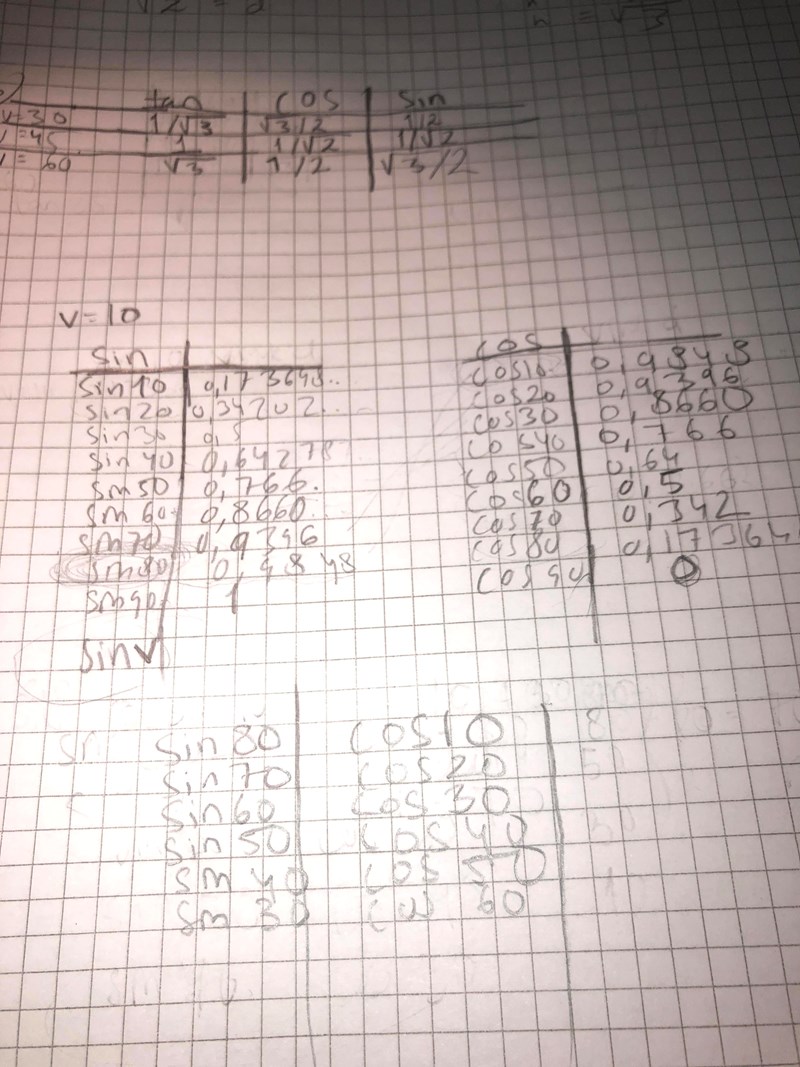 √2 = 2
tan cos sin
v=30 1/√3 √3/2 1/2
v=45 1 1/√2 1/√2
v=60 √3 1/2 √3/2
v=10
sin
sin10 0,173648..
sin20 0,34202..
sin30 0,5
sin40 0,64278
sin50 0,766.
sin60 0,8660
sin70 0,9396
sin80 0,9848
sin90 1
sinv
cos
cos10 0,9848
cos20 0,9396
cos30 0,8660
cos40 0,766
cos50 0,64
cos60 0,5
cos70 0,342
cos80 0,17364
cos90 0
sin80 cos10
sin70 cos20
sin60 cos30
sin50 cos40
sin40 cos50
sin30 cos60